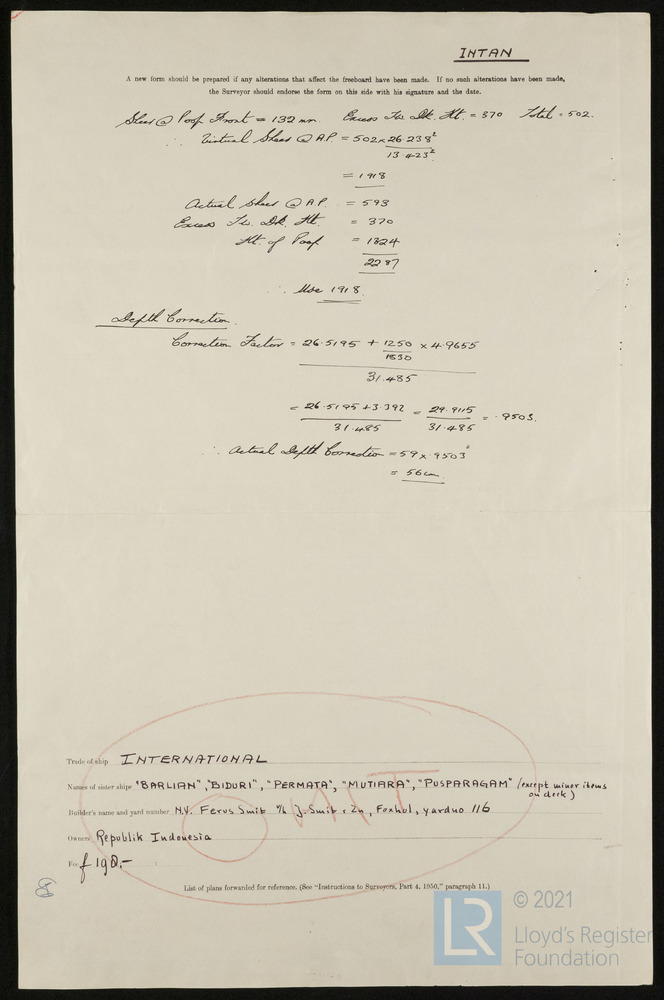 INTAN
A new form should be prepared if any alterations that affect the freeboard have been made. If no such alterations have been made,
the Surveyor should endorse the form on this side with his signature and the date.
Sheer @ Poop Front = 132 mm. Excess Tw. Dk. Ht. = 370 Total = 502.
∴ Virtual Sheer @ A.P. = 502 × 26.238²
13.423²
= 1918
Actual Sheer @ A.P. = 593
Excess Tw. Dk. Ht. = 370
Ht. of Poop = 1324
2287
∴ Use 1918
Depth Correction.
Correction Factor = 26.5195 + 1250 × 4.9655
1830
31.485
= 26.5195 + 3.392 = 29.9115 = .9503.
31.485 31.485
∴ Actual Depth Correction = 59 × .9503
= 56 cm
Trade of ship INTERNATIONAL
Names of sister ships "BARLIAN", "BIDURI", "PERMATA", "MUTIARA", "PUSPARAGAM" (except minor items
on deck)
Builder's name and yard number N.V. Ferus Smit v/h J. Smit & Zn, Foxhol, yardno 116
Owners Republik Indonesia
Fee f 190,-
OMIT
List of plans forwarded for reference. (See "Instructions to Surveyors, Part 4, 1950," paragraph 11.)
LR
© 2021
Lloyd's Register
Foundation